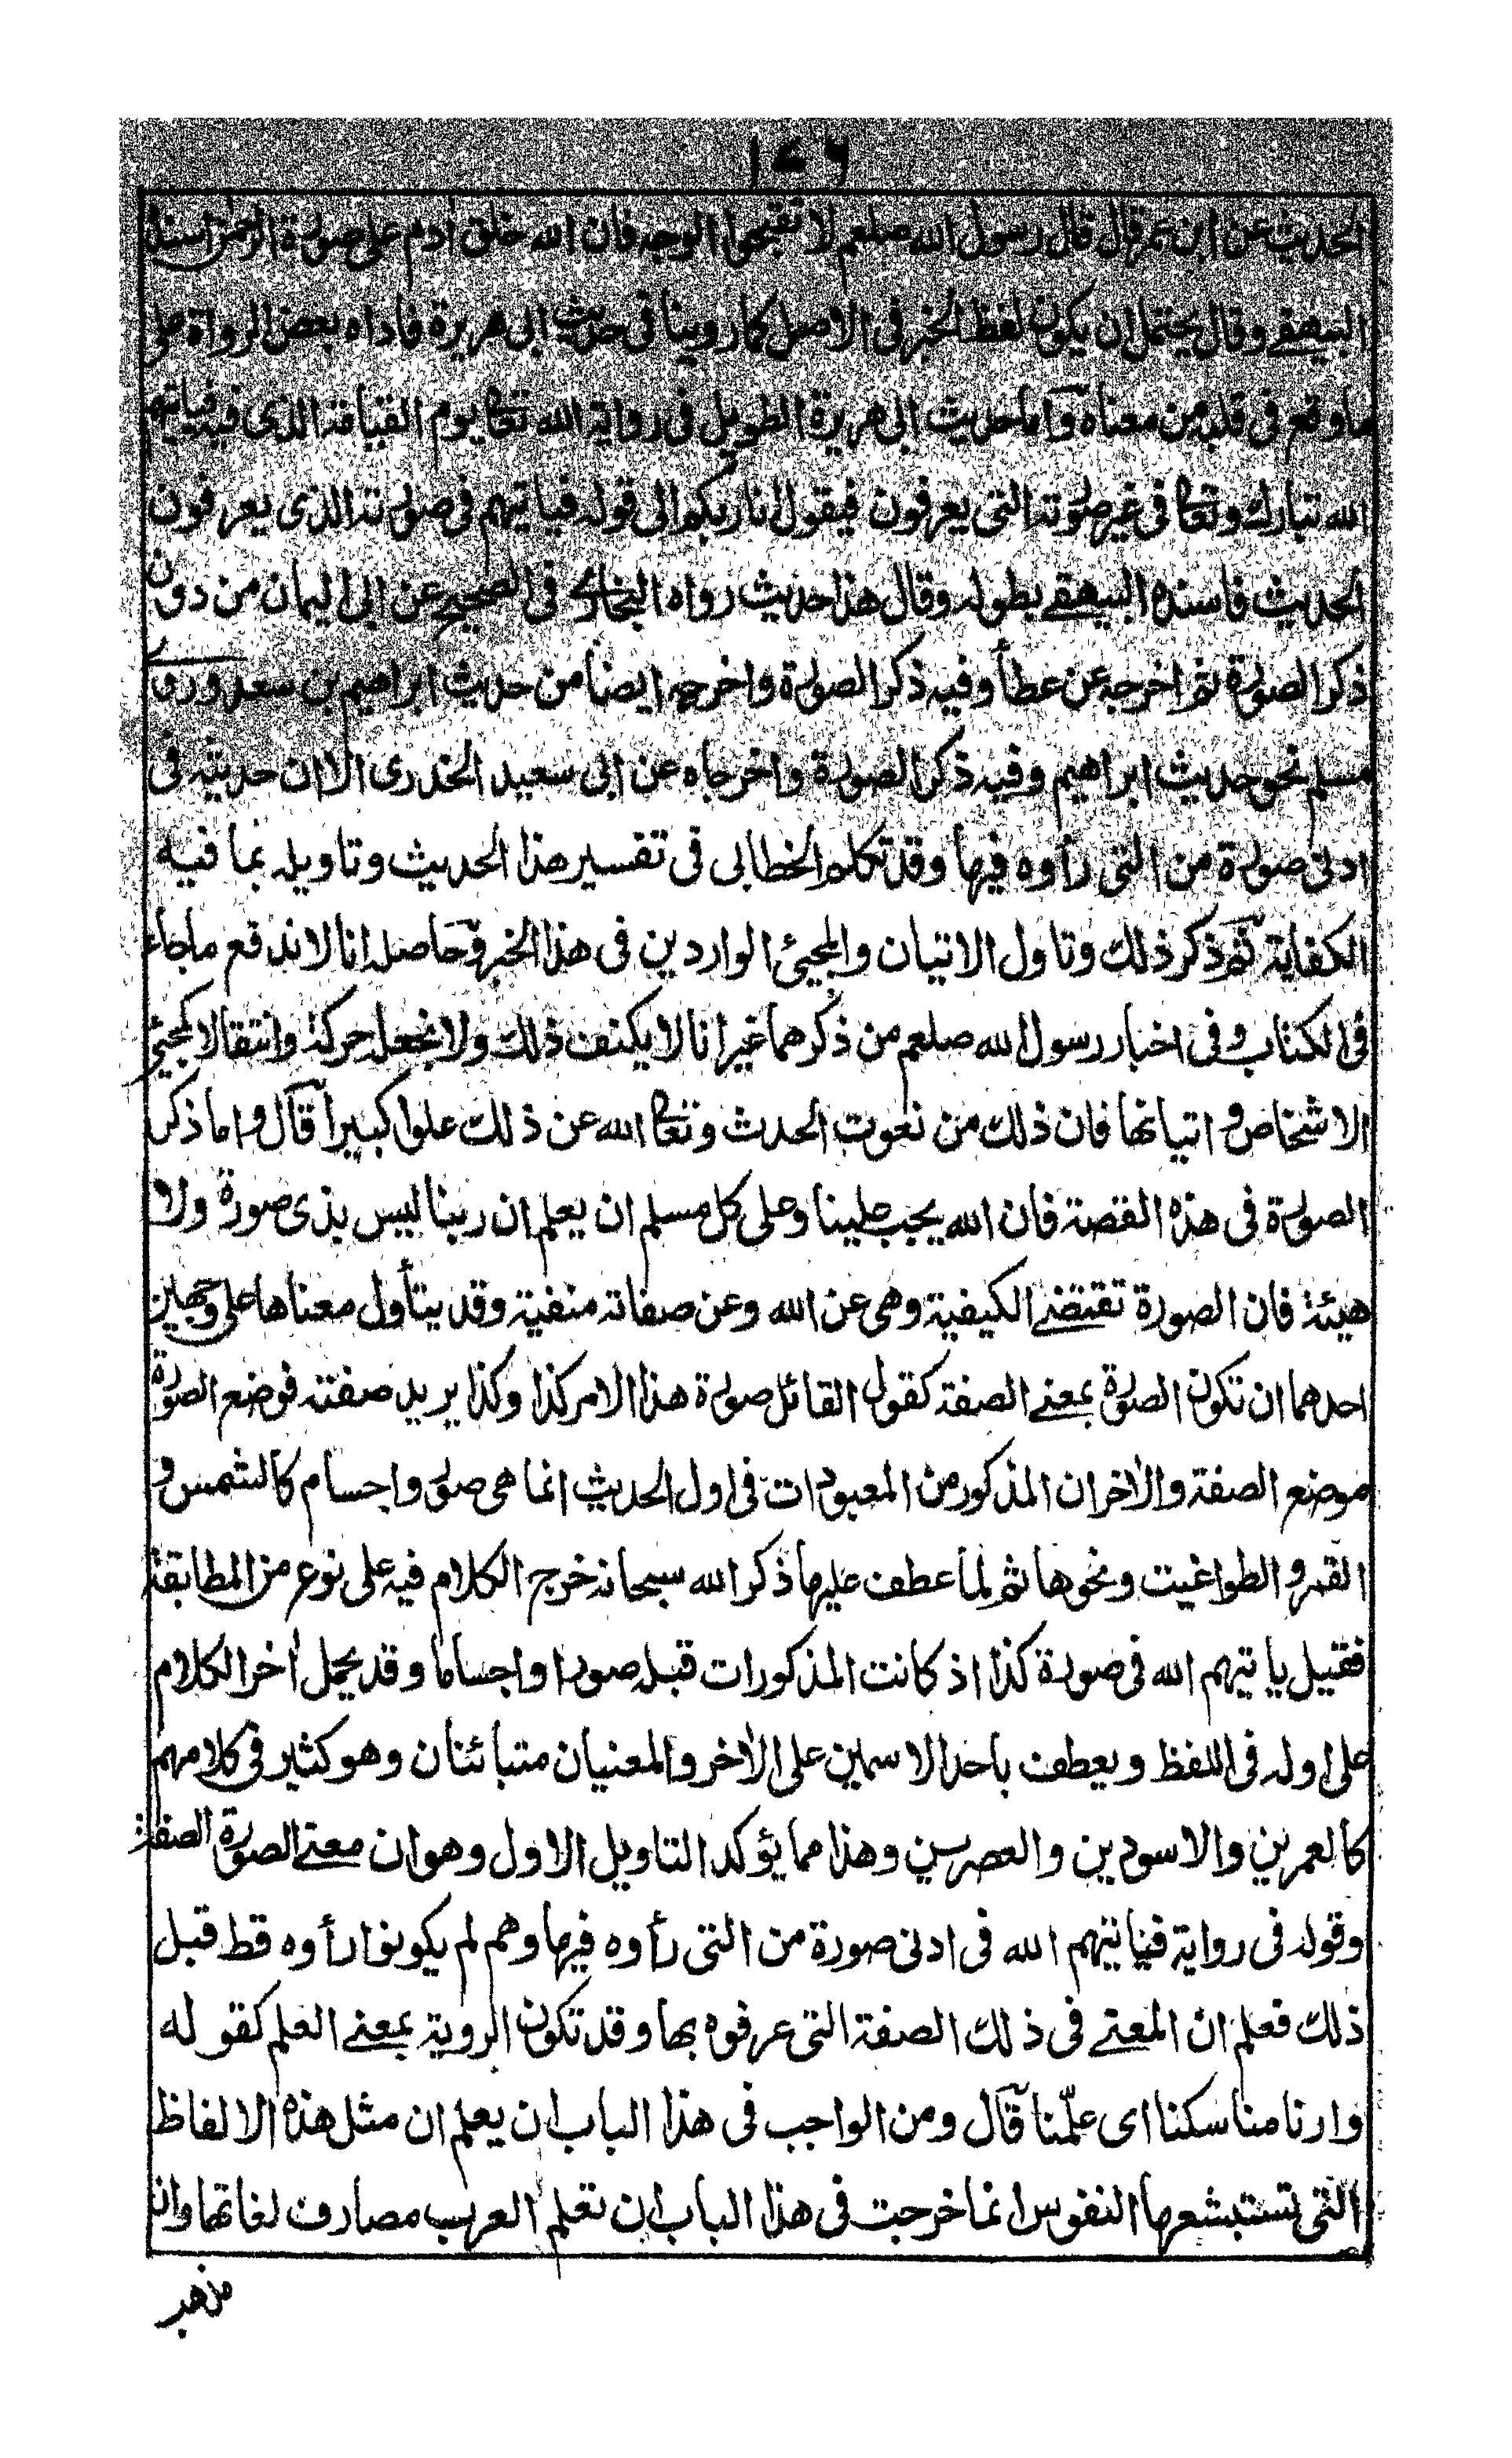 ١٤٦
الحديث عن ابن عمر قال قال رسول الله صلعم لا تقبحوا الوجه فان الله خلق ادم على صورة الرحمن اسند
البيهقي وقال يحتمل ان يكون لفظ الخبر في الاصل كما روينا في حديث ابي هريرة فاداه بعض الرواة على
ما وقع في قلبه من معناه واما حديث ابي هريرة الطويل في رواية الله تعا يوم القيامة الذي فيه فياتيهم
الله تبارك وتعا في غير صورته التي يعرفون فيقول انا ربكم الى قوله فياتيهم في صورته الذي يعرفون
الحديث فاسنده البيهقي بطوله وقال هذا حديث رواه البخاري في الصحيح عن ابي اليمان من دون
ذكر الصورة ثم اخرجه عن عطأ وفيه ذكر الصورة واخرجه ايضا من حديث ابراهيم بن سعد وروى
مسلم نحو حديث ابراهيم وفيه ذكر الصورة واخرجاه عن ابي سعيد الخدري الا ان حديثه في
ادنى صورة من التي رأوه فيها وقد تكلم الخطابي في تفسير هذا الحديث وتاويله بما فيه
الكفاية ثم ذكر ذلك وتاول الاتيان والمجيئ الواردين في هذا الخبر وحاصله انا لا ندفع ما جاء
في الكتاب وفي اخبار رسول الله صلعم من ذكرهما غير انا لا يكنف ذلك ولا نجعله حركة وانتقالا كمجيئ
الاشخاص و اتيانها فان ذلك من نعوت الحدث وتعا الله عن ذلك علوا كبيرا قال واما ذكر
الصورة في هذه القصة فان الله يجب علينا وعلى كل مسلم ان يعلم ان ربنا ليس بذي صورة ولا
هيئة فان الصورة تقتضي الكيفية وهي عن الله وعن صفاته منفية وقد يتأول معناها على وجهين
احدهما ان تكون الصورة بمعنى الصفة كقول القائل صورة هذا الامر كذا وكذا يريد صفته فوضع الصورة
موضع الصفة والاخر ان المذكور من المعبودات في اول الحديث انما هي صور واجسام كالشمس و
القمر و الطواغيت ونحوها ثم لما عطف عليها ذكر الله سبحانه خرج الكلام فيه على نوع من المطابقة
فقيل ياتيهم الله في صورة كذا اذ كانت المذكورات قبله صورا واجساما وقد يحمل أخر الكلام
على اوله في اللفظ ويعطف باحد الاسمين على الاخر والمعنيان متبائنان وهو كثير في كلامهم
كالعمرين والاسودين والعصرين وهذا مما يؤكد التاويل الاول وهو ان معنى الصورة الصفة
وقوله في رواية فياتيهم الله في ادنى صورة من التي رأوه فيها وهم لم يكونوا رأوه قط قبل
ذلك فعلم ان المعنى في ذلك الصفة التي عرفوه بها وقد تكون الروية بمعنى العلم كقوله
وارنا مناسكنا اي علّمنا قال ومن الواجب في هذا الباب ان يعلم ان مثل هذه الالفاظ
التي تستبشعها النفوس انما خرجت في هذا الباب ان تعلم العرب مصارف لغاتها وان